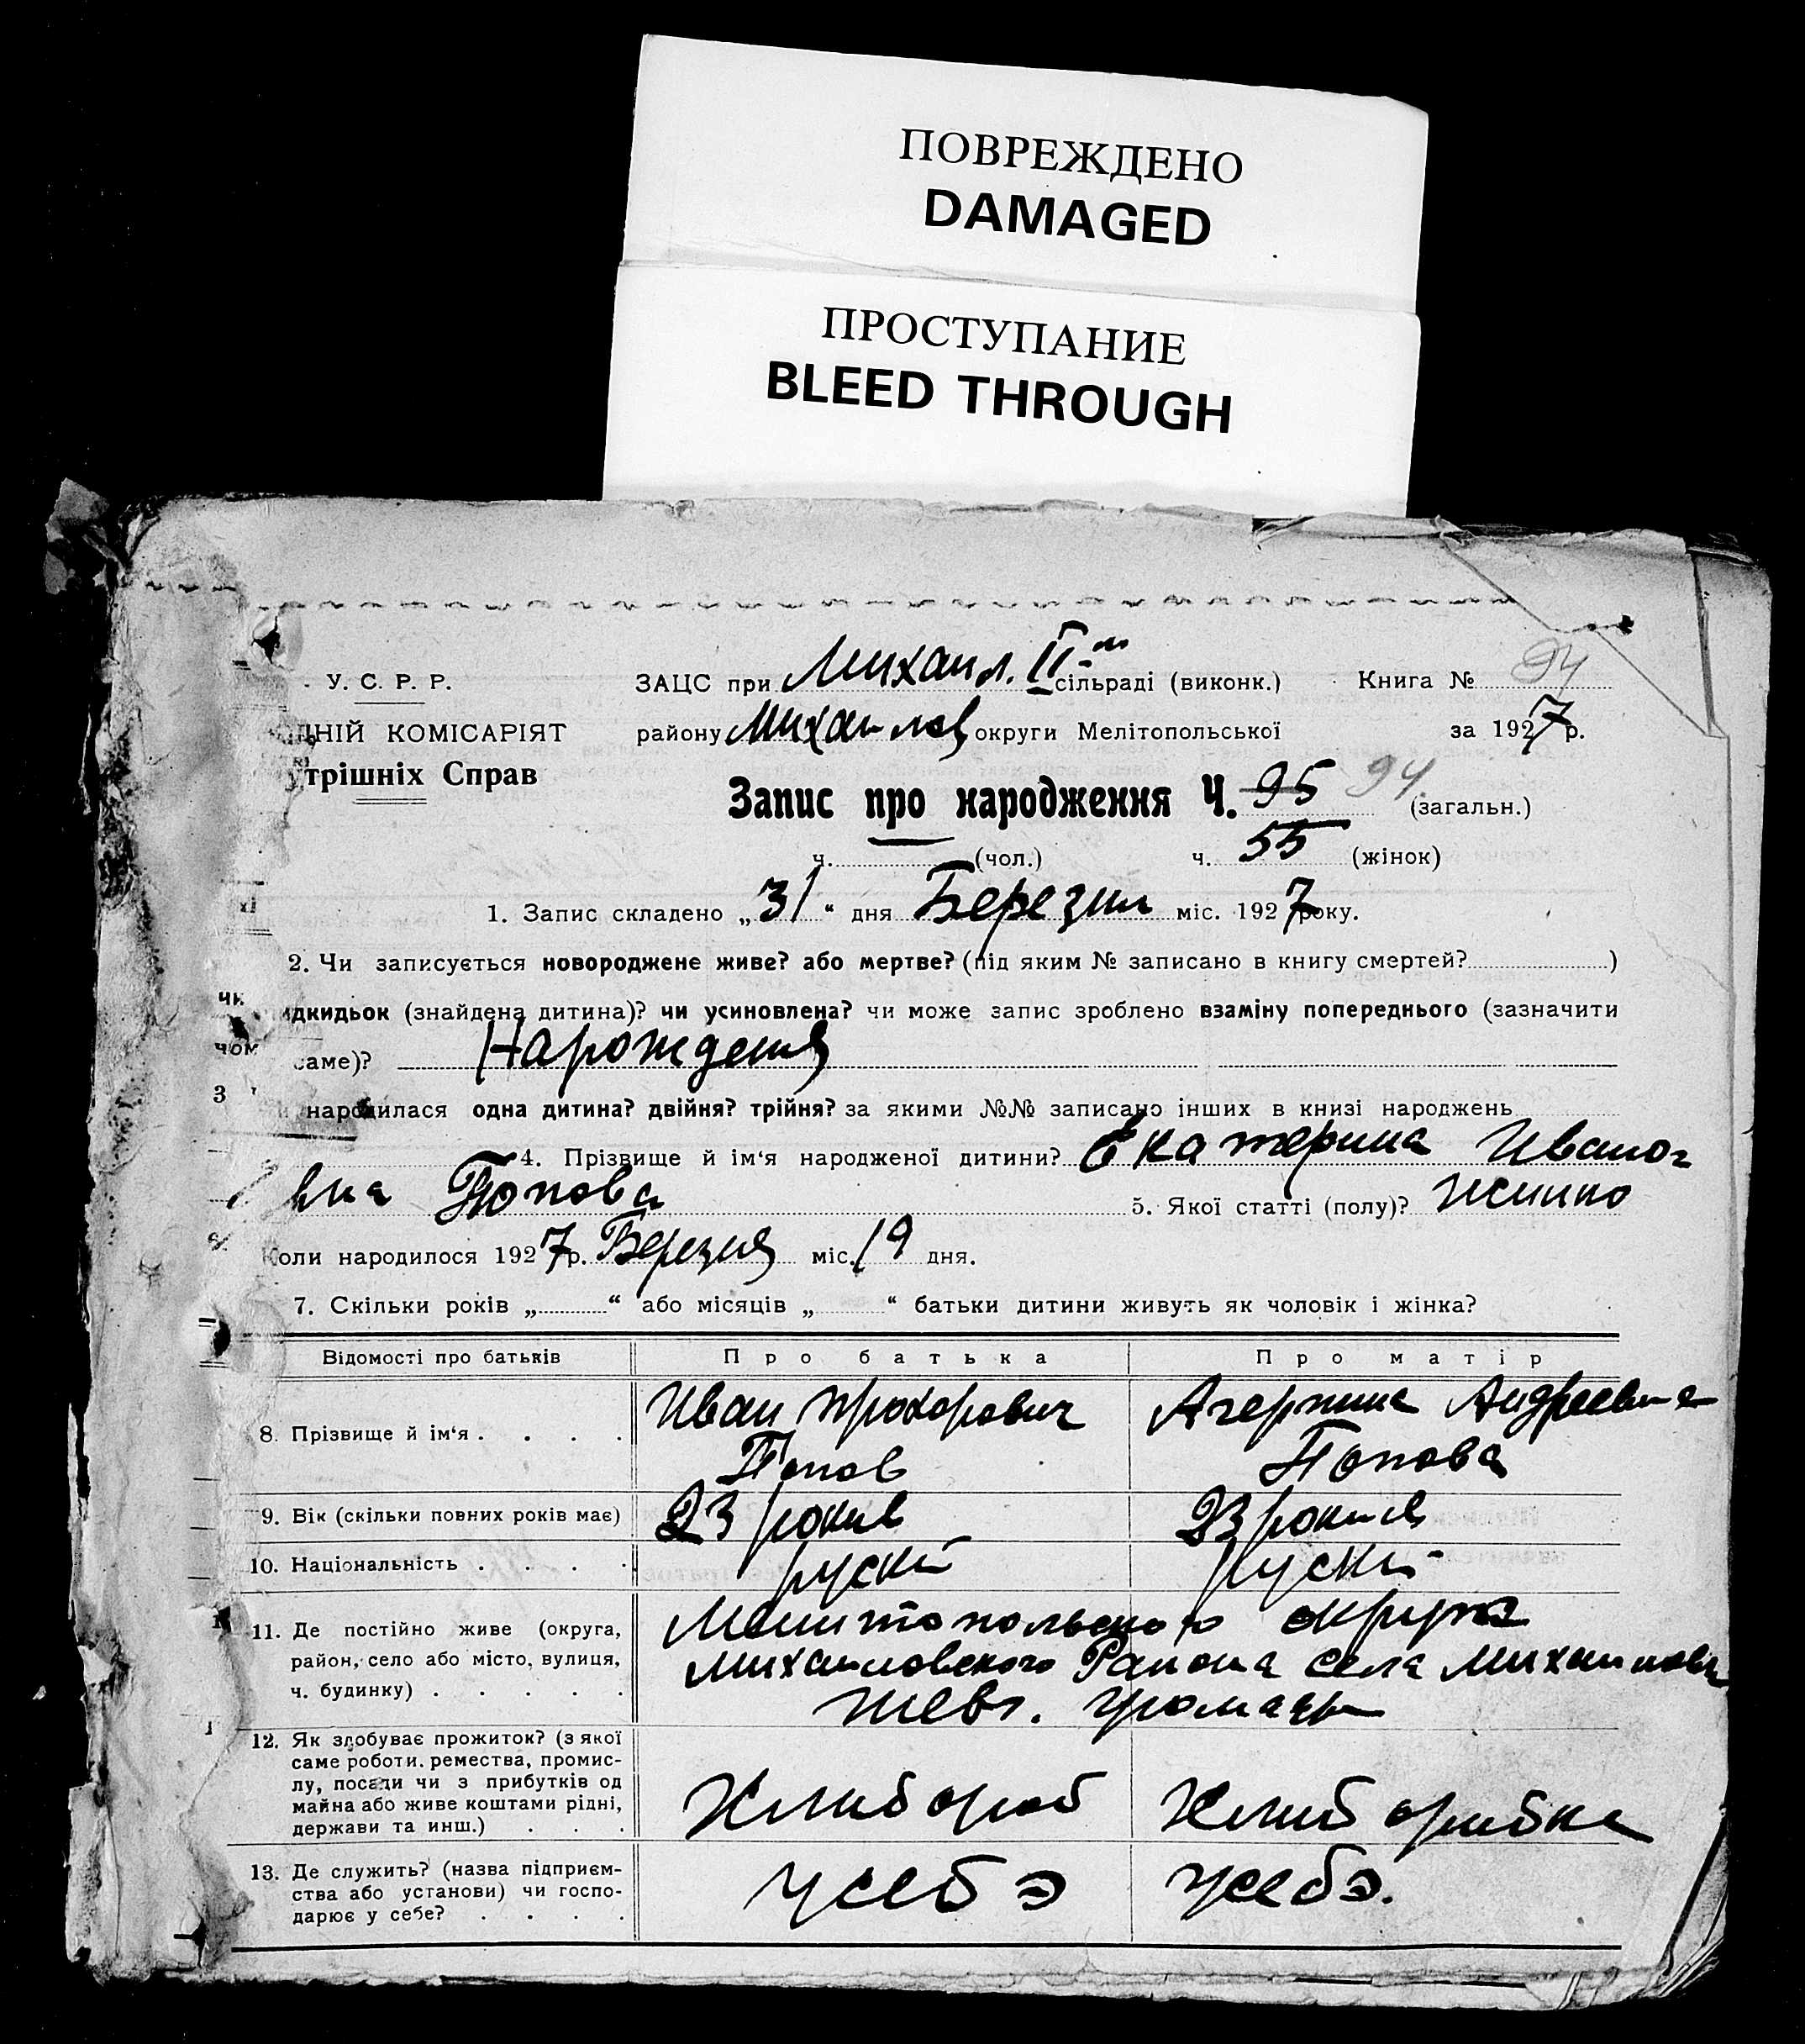 ПОВРЕЖДЕНО
DAMAGED
ПРОСТУПАНИЕ
BLEED THROUGH
У. С. Р. Р. ЗАЦС при Михаил. II сільраді (виконк.) Книга № 94
ДНІЙ КОМІСАРІЯТ району Михайлов округи Мелітопольської за 1927 р.
утрішніх Справ
Запис про народження Ч. 95 94 (загальн.)
ч. (чол.) ч. 55 (жінок)
1. Запис складено „31“ дня Березня міс. 1927 року.
2. Чи записується новороджене живе? або мертве? (під яким № записано в книгу смертей? )
чи ідкидьок (знайдена дитина)? чи усиновлена? чи може запис зроблено взаміну попереднього (зазначити
чом саме)? Нарождения
3 народилася одна дитина? двійня? трійня? за якими №№ записано інших в книзі народжень
4. Прізвище й ім‘я народженої дитини? Екатерина Ивано-
вна Попова 5. Якої статті (полу)? жинко
Коли народилося 1927 р. Березня міс. 19 дня.
7. Скільки років „ “ або місяців „ “ батьки дитини живуть як чоловік і жінка?
Відомості про батьків Про батька Про матір
8. Прізвище й ім‘я . . . . Иван Прохорович Агерпина Андреевна
Попов Попова
9. Вік (скільки повних років має) 23 рокив 23 рокив
10. Національність . . . . руский руски
11. Де постійно живе (округа, Мелитопольского округа
район, село або місто, вулиця, Михайловского Района села Михайловка
ч. будинку) . . . . . Шевч. громады
12. Як здобуває прожиток? (з якої
саме роботи, ремества, промис-
лу, посади чи з прибутків од
майна або живе коштами рідні, Хлибороб Хлиборибка
держави та инш.) . . .
13. Де служить? (назва підприєм-
ства або установи) чи госпо- усебэ усебэ.
дарює у себе? . . . .